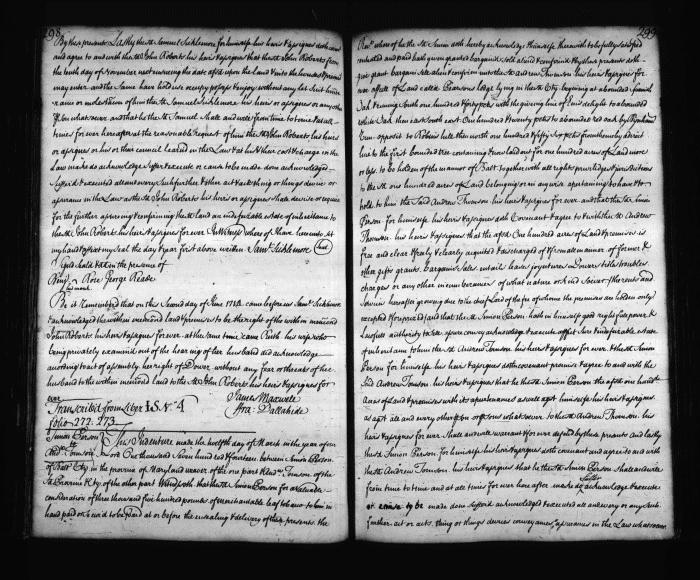 298
By these presents Lastly the sd Samuel Sicklemore for himselfe his heirs & assigns doth coven
and agree to and with the sd John Roberts his heirs & assigns that the sd John Roberts from
the tenth day of November next ensuing the date of all upon the Land & into the housed & premises
may enter and the same have hold use occupy possess & enjoy without any let Suit hinder
rance or molestation of him the sd Samuel Sicklemore his heirs or assigns or any other
Pson whatsoever and that he the sd Samuel shall and will from time to time & at all
times for ever hereafter at the reasonable request of him the sd John Roberts his heirs
or assigns or his or their councel learned in the Law & at his & their cost & charge in the
Law make do acknowledge Suffer & execute or cause to be made done acknowledged
Suffered & executed all and every such further & other act & acts thing or things devise or
assurance in the Law as the sd John Roberts his heirs or assigns shall devise or require
for the further assuring & confirming the sd Land an indefeasable estate of inheritance to
the sd John Roberts his heirs & assigns for ever In Witness whereof I have hereunto set
my hand & affixt my seal the day & year first above written Saml Sicklemore (Seal)
Signd Seald & td in the presence of
Benj Rose George Reade
Be it Remembred that on this Second day of June 1714 came before us Saml Sicklemore
& acknowledged the within mentioned land & premises to be the right of the within mentiond
John Roberts his heirs & assigns for ever at the same time came Ruth his wife who
being privately examind out of the hearing of her husband did acknowledge
according to act of assembly her right of Dower without any fear or threats of her
husband to the within mentiond land to the sd John Roberts his heirs & assigns for
ever
James Maxwell
Fra: Dallahide
Transcribed from Liber I S No 4
folio 272: 273
Simon Person
to
Andw Tomson
This Indenture made the twelfth day of March in the year of our
Lord One thousand Seven hundred & fourteen between Simon Person
of Balt County in the province of Maryland weaver of the one part & Andw Tomson of the
sd Province & Cty of the other part Witnesseth that the sd Simon Person for a valuable
consideration of three thousand five hundred pounds of merchantable leaf tobacco to him in
hand paid or secur'd to be paid at or before the ensealing & delivery of these presents the
299
Rect whereof he the sd Simon doth hereby acknowledge & himselfe therewith to be fully satisfied
contented and paid hath given granted bargained sold aliend & confirmed & by these presents doth
give grant bargain sell alien & confirm unto the sd Andrew Tomson his heirs & assigns for
ever all sd Land called Pearsons Lodge lying in the sd Cty begining at a bounded Spanish
Oak & runing South one hundred & forty perches with the giving line of Eons delight to a bounded
White Oak then east south east One hundred & twenty perches to a bounded red oak by
Run opposite to Robins hill then north one hundred & fifty six perches from thence by a direct
line to the first bounded tree containing & now laid out for one hundred acres of Land more
or less to be holden of the mannor of Balt Together with all rights priviledges & jurisdictions
to the sd one hundred acres of Land belonging or in anywise apertaining to have & to
hold to him the said Andrew Thomson his heirs & assigns for ever and that the sd Simon
Person for himselfe his heirs & assigns doth Covenant & agree to & with the sd Andrew
Thomson his heirs & assigns that the aforesd One hundred acres of land & premises is
free and clear & freely & clearly acquitted & discharged of & from all manner of former &
other gifts grants bargains Sales entails leases joyntures Dowers title troubles
charges or any other incumberances of what nature or kind soever (the rents and
services hereafter growing due to the cheif Lord of the fee of whom the premises are holden only
excepted & foreprized) and that the sd Simon Person hath in himself good right full power &
lawfull authority to sell assure convey acknowledge & execute a perfect sure & indefeasable estate
of inheritance to him the sd Andrew Tomson his heirs & assigns for ever & the sd Simon
Person for himselfe his heirs & assigns doth covenant promise & agree to and with the
said Andrew Tomson his heirs & assigns that he the sd Simon Person the aforesd one hundred
Acres of Land & premises with its apurtenances as well agst himself his heirs & assigns
as agst all and every other Pson or Psons whatsoever to the sd Andrew Thomson his
heirs & assigns for ever shall and will warrant & for ever defend by these presents and lastly
the sd Simon Person for himselfe his heirs & assigns doth covenant and agree to and with
the sd Andrew Tomson his heirs & assigns that he the sd Simon Person shall and will
from time to time and at all times for ever hereafter make do Suffer acknowledge & execute
or cause to be made done Sufferd acknowledged & executed all and every or any such
further act or acts thing or things devises conveyances assurances in the Law whatsoever